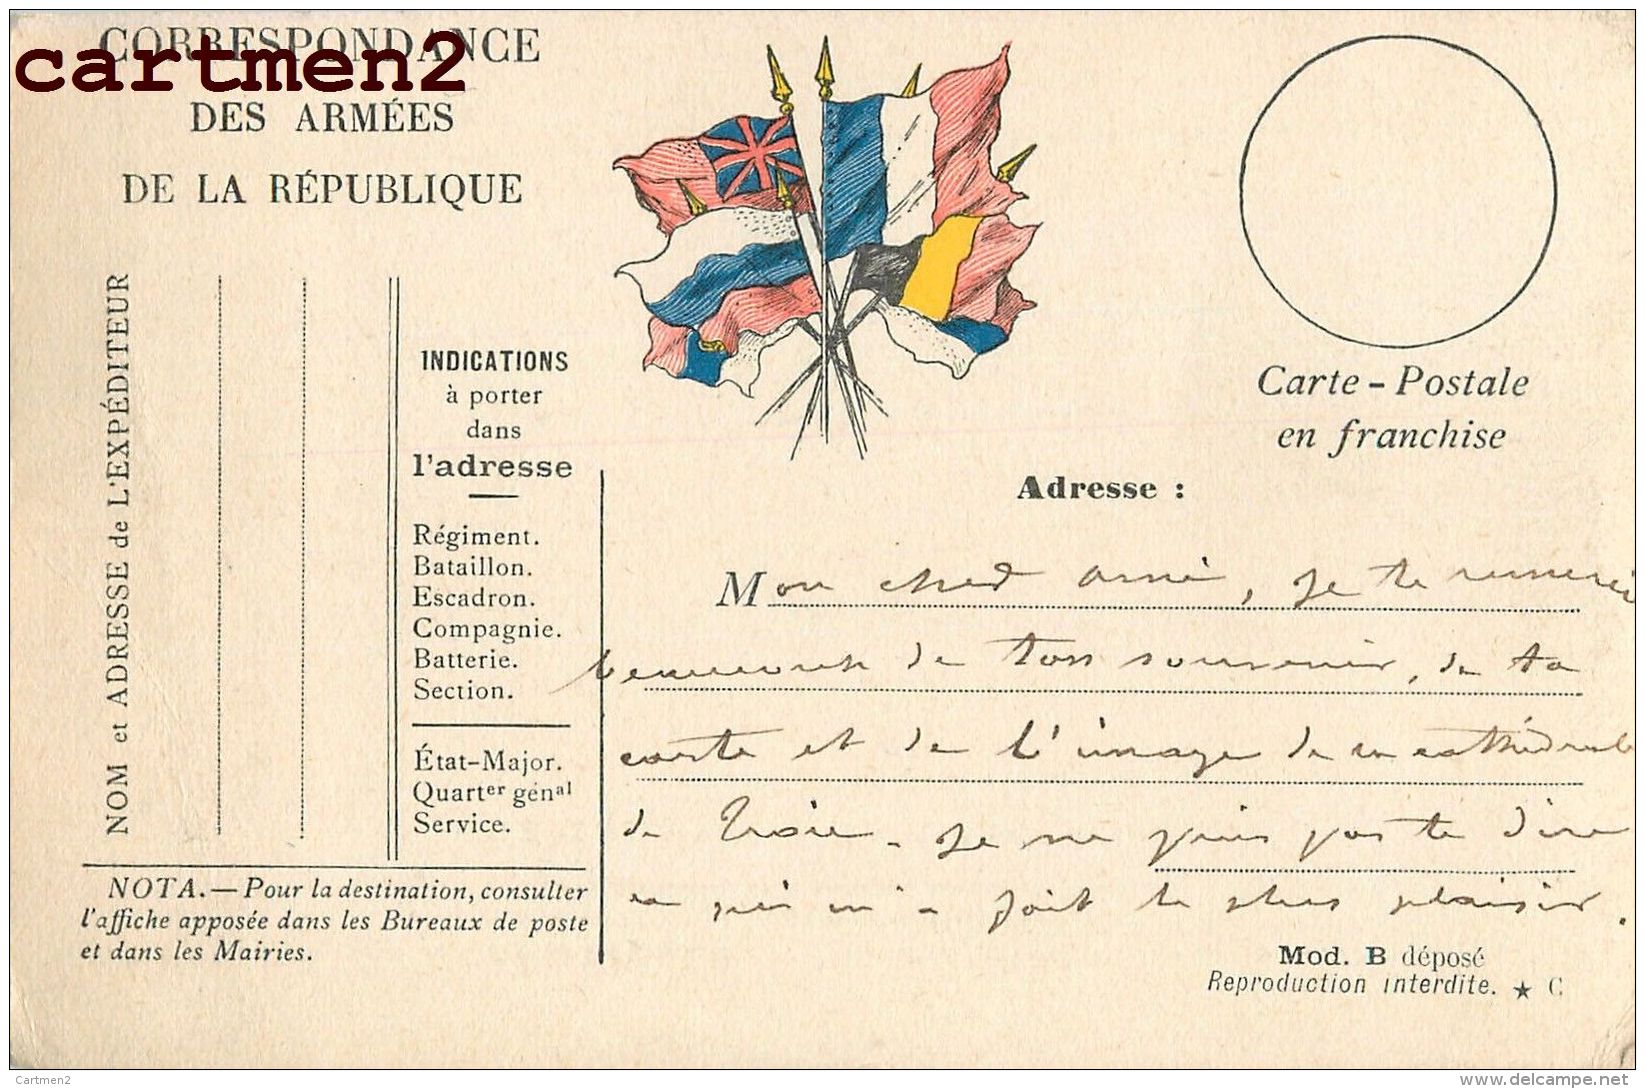 cartmen2
CORRESPONDANCE
DES ARMÉES
DE LA RÉPUBLIQUE
NOM et ADRESSE de L'EXPÉDITEUR
INDICATIONS
à porter
dans
l'adresse
Régiment.
Bataillon.
Escadron.
Compagnie.
Batterie.
Section.
État-Major.
Quartᵉʳ génᵃˡ
Service.
NOTA. — Pour la destination, consulter
l'affiche apposée dans les Bureaux de poste
et dans les Mairies.
Carte-Postale
en franchise
Adresse :
Mon cher ami, je te remercie
beaucoup de ton souvenir, de ta
carte et de l'image de la cathédrale
de . Je ne puis pas te dire
ce qui m'a fait le plus plaisir.
Mod. B déposé
Reproduction interdite. ★ C
Cartmen2
delcampe.net